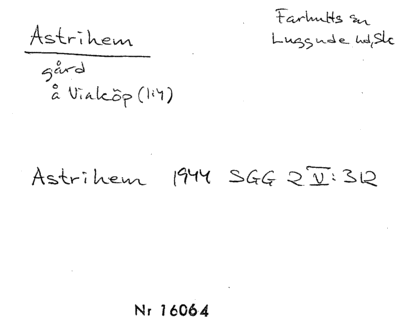 Astrihem
Farhults sn
Luggude hd, Sk
gård
å Vialköp (1:4)
Astrihem 1944 SGG 2 V: 312
Nr 16064